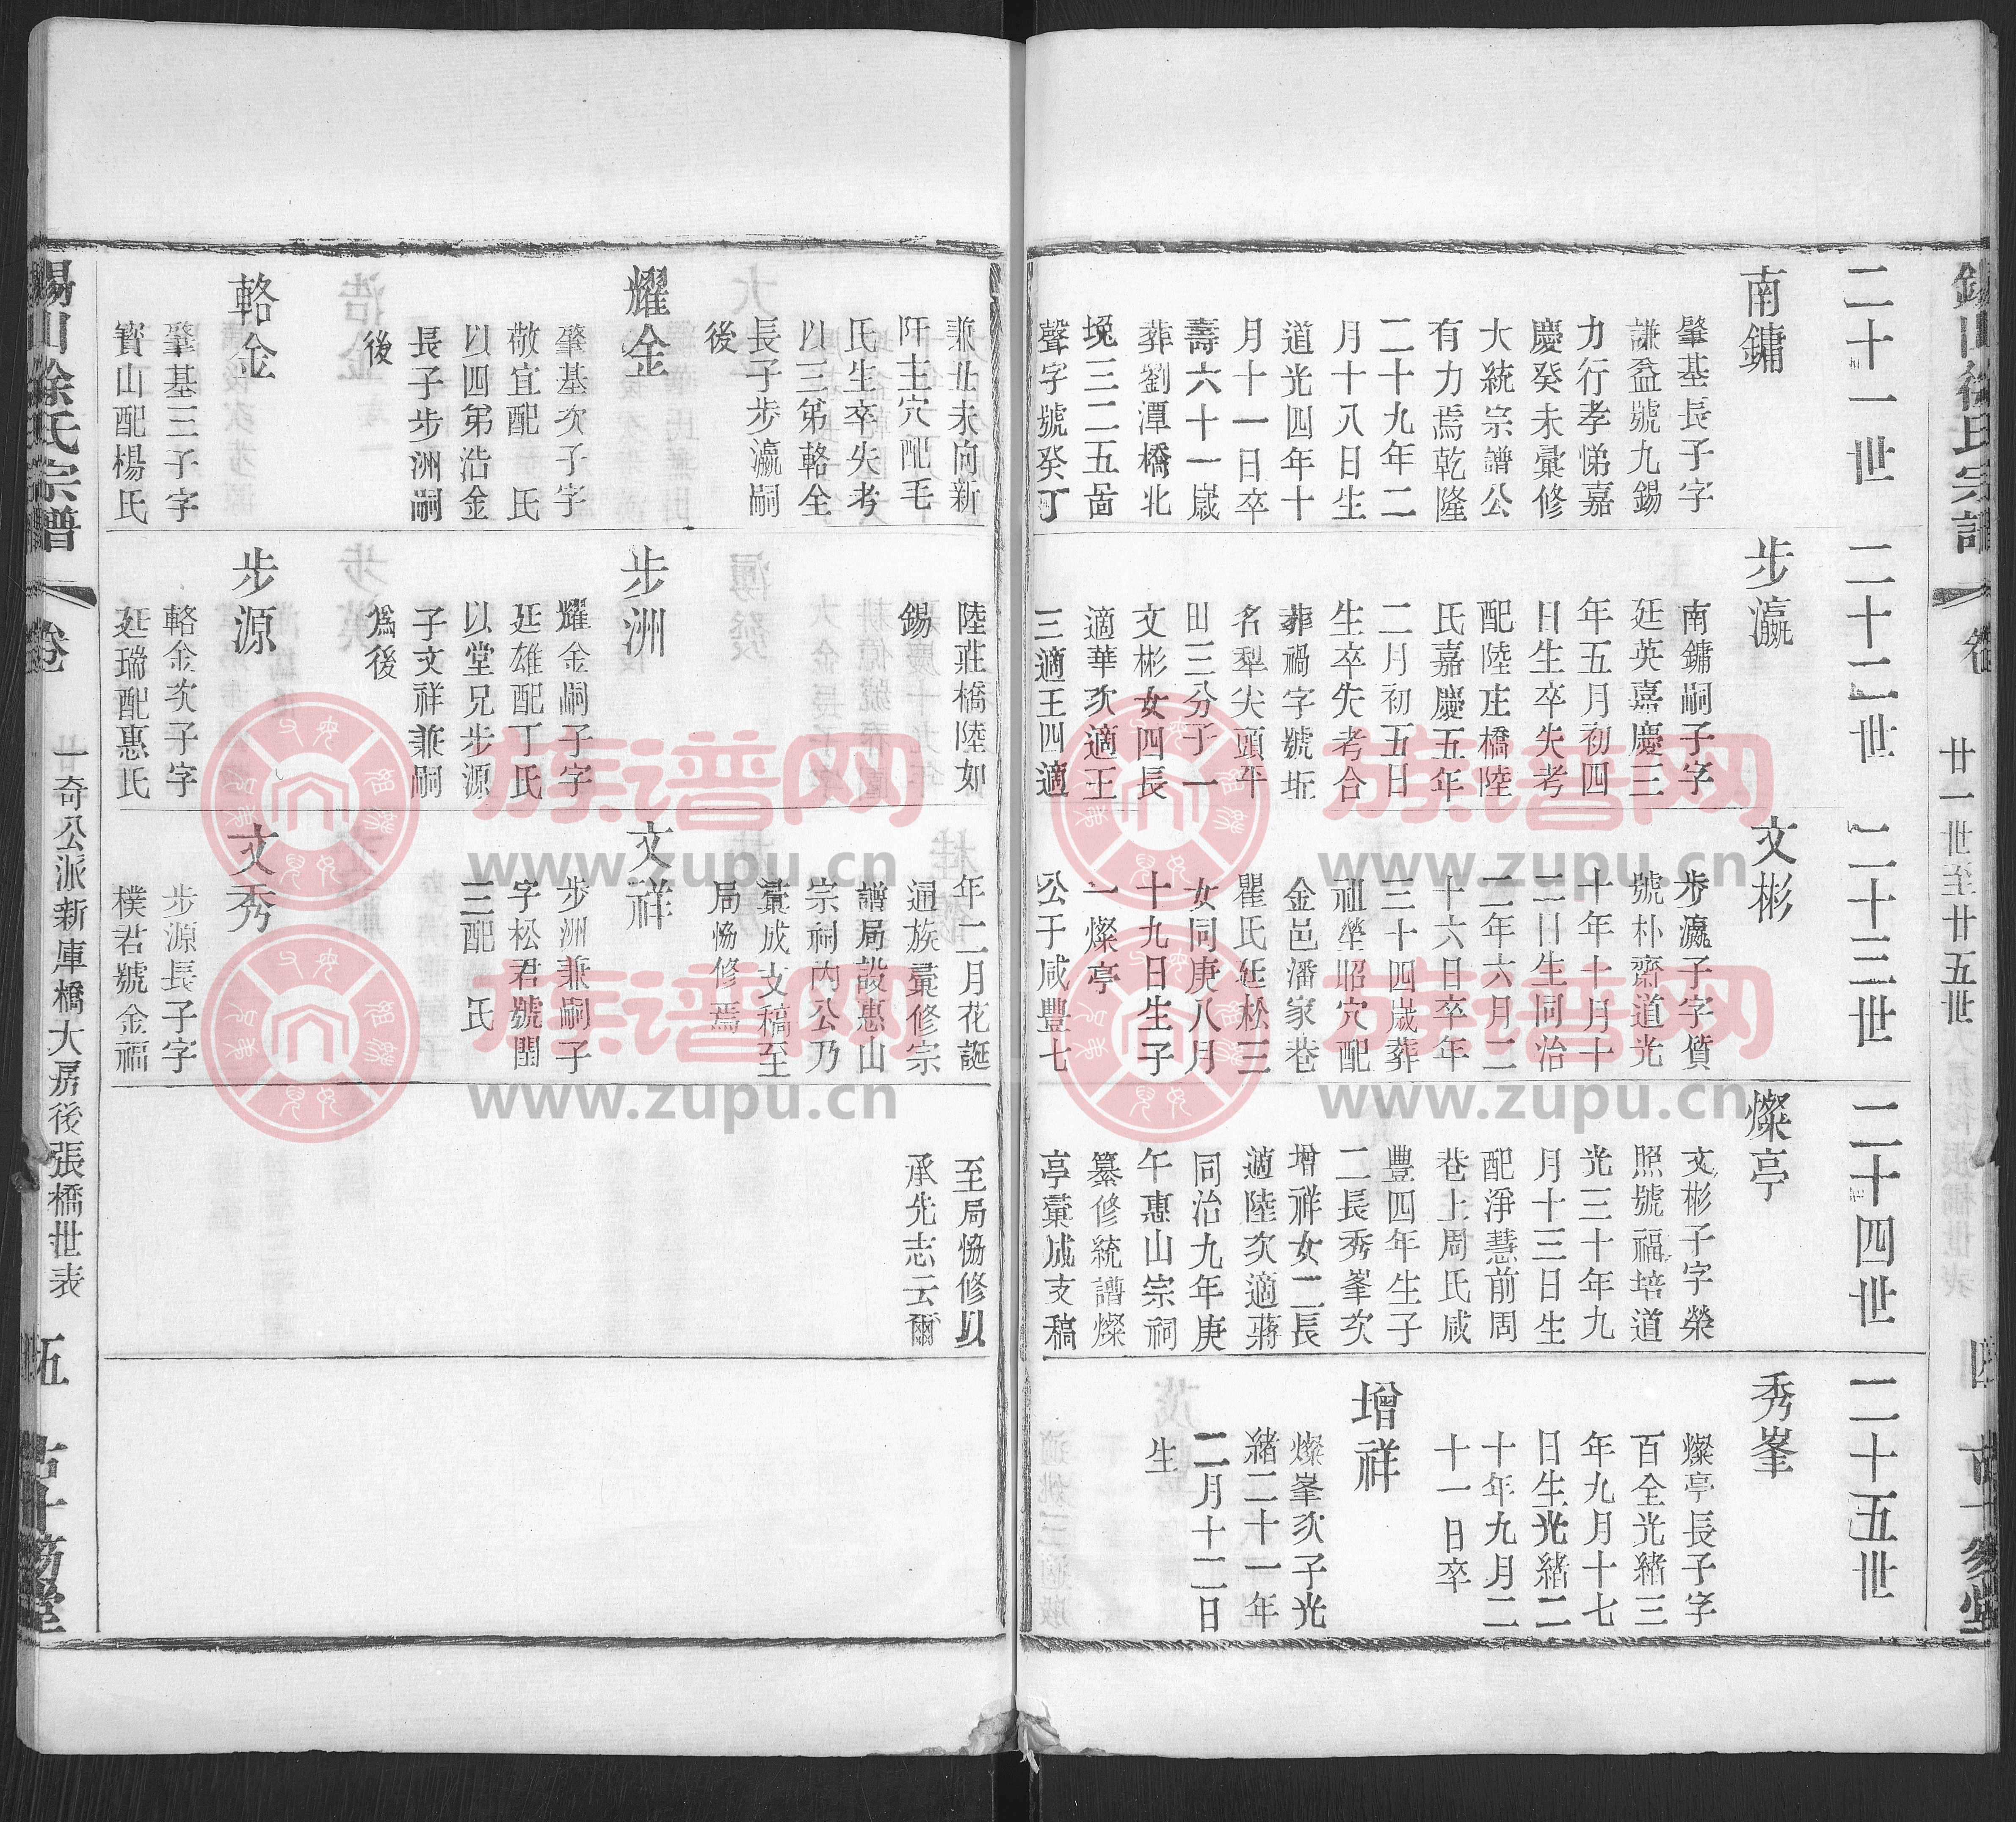 廿一世至廿五世
二十一世
南鏞
肇基長子字
謙益號九錫
力行孝悌嘉
慶癸未彙修
大統宗譜公
有力焉乾隆
二十九年二
月十八日生
道光四年十
月十一日卒
壽六十一嵗
葬劉潭橋北
堍三二五啚
聲字號癸丁
二十二世
步瀛
南鏞嗣子字
廷英嘉慶三
年五月初四
日生卒失考
配陸庄橋陸
氏嘉慶五年
二月初五日
生卒失考合
葬禍字號坵
名犁尖頭平
田三分子一
文彬女四長
適華次適王
三適王四適
二十三世
文彬
步瀛子字貨
號朴齋道光
十年十月十
二日生同治
二年六月二
十六日卒年
三十四嵗葬
祖塋昭穴配
金邑潘家巷
瞿氏廷松三
女同庚八月
十九日生子
一燦亭
公于咸豐七
二十四世
燦亭
文彬子字榮
照號福培道
光三十年九
月十三日生
配淨慧前周
巷上周氏咸
豐四年生子
二長秀峯次
增祥女二長
適陸次適蔣
同治九年庚
午惠山宗祠
纂修統譜燦
亭彙成支稿
二十五世
秀峯
燦亭長子字
百全光緒三
年九月十七
日生光緒二
十年九月二
十一日卒
增祥
燦峯次子光
緒二十一年
二月十二日
生
兼丑未向新
阡主穴配毛
氏生卒失考
以三弟輅金
長子步瀛嗣
後
耀金
肇基次子字
敬宜配　氏
以四弟浩金
長子步洲嗣
後
輅金
肇基三子字
寶山配楊氏
陸莊橋陸如
錫
步洲
耀金嗣子字
廷雄配丁氏
以堂兄步源
子文祥兼嗣
為後
步源
輅金次子字
廷瑞配惠氏
年二月花誕
通族彙修宗
譜局設惠山
宗祠內公乃
彙成支稿至
局恊修焉
文祥
步洲兼嗣子
字松君號閏
三配　氏
文秀
步源長子字
樸君號金福
至局恊修以
承先志云爾
錫山徐氏宗譜
卷
一奇公派新庫橋大房後張橋世表
伍
古十笏堂
族谱网
www.zupu.cn
族谱网
www.zupu.cn
族谱网
www.zupu.cn
族谱网
www.zupu.cn